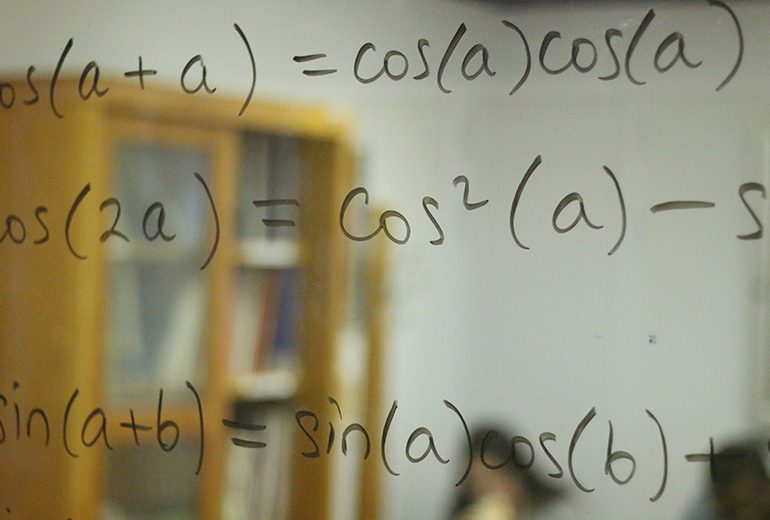 os(a+a) = cos(a)cos(a)
os(2a) = cos²(a) - s
sin(a+b) = sin(a)cos(b) +